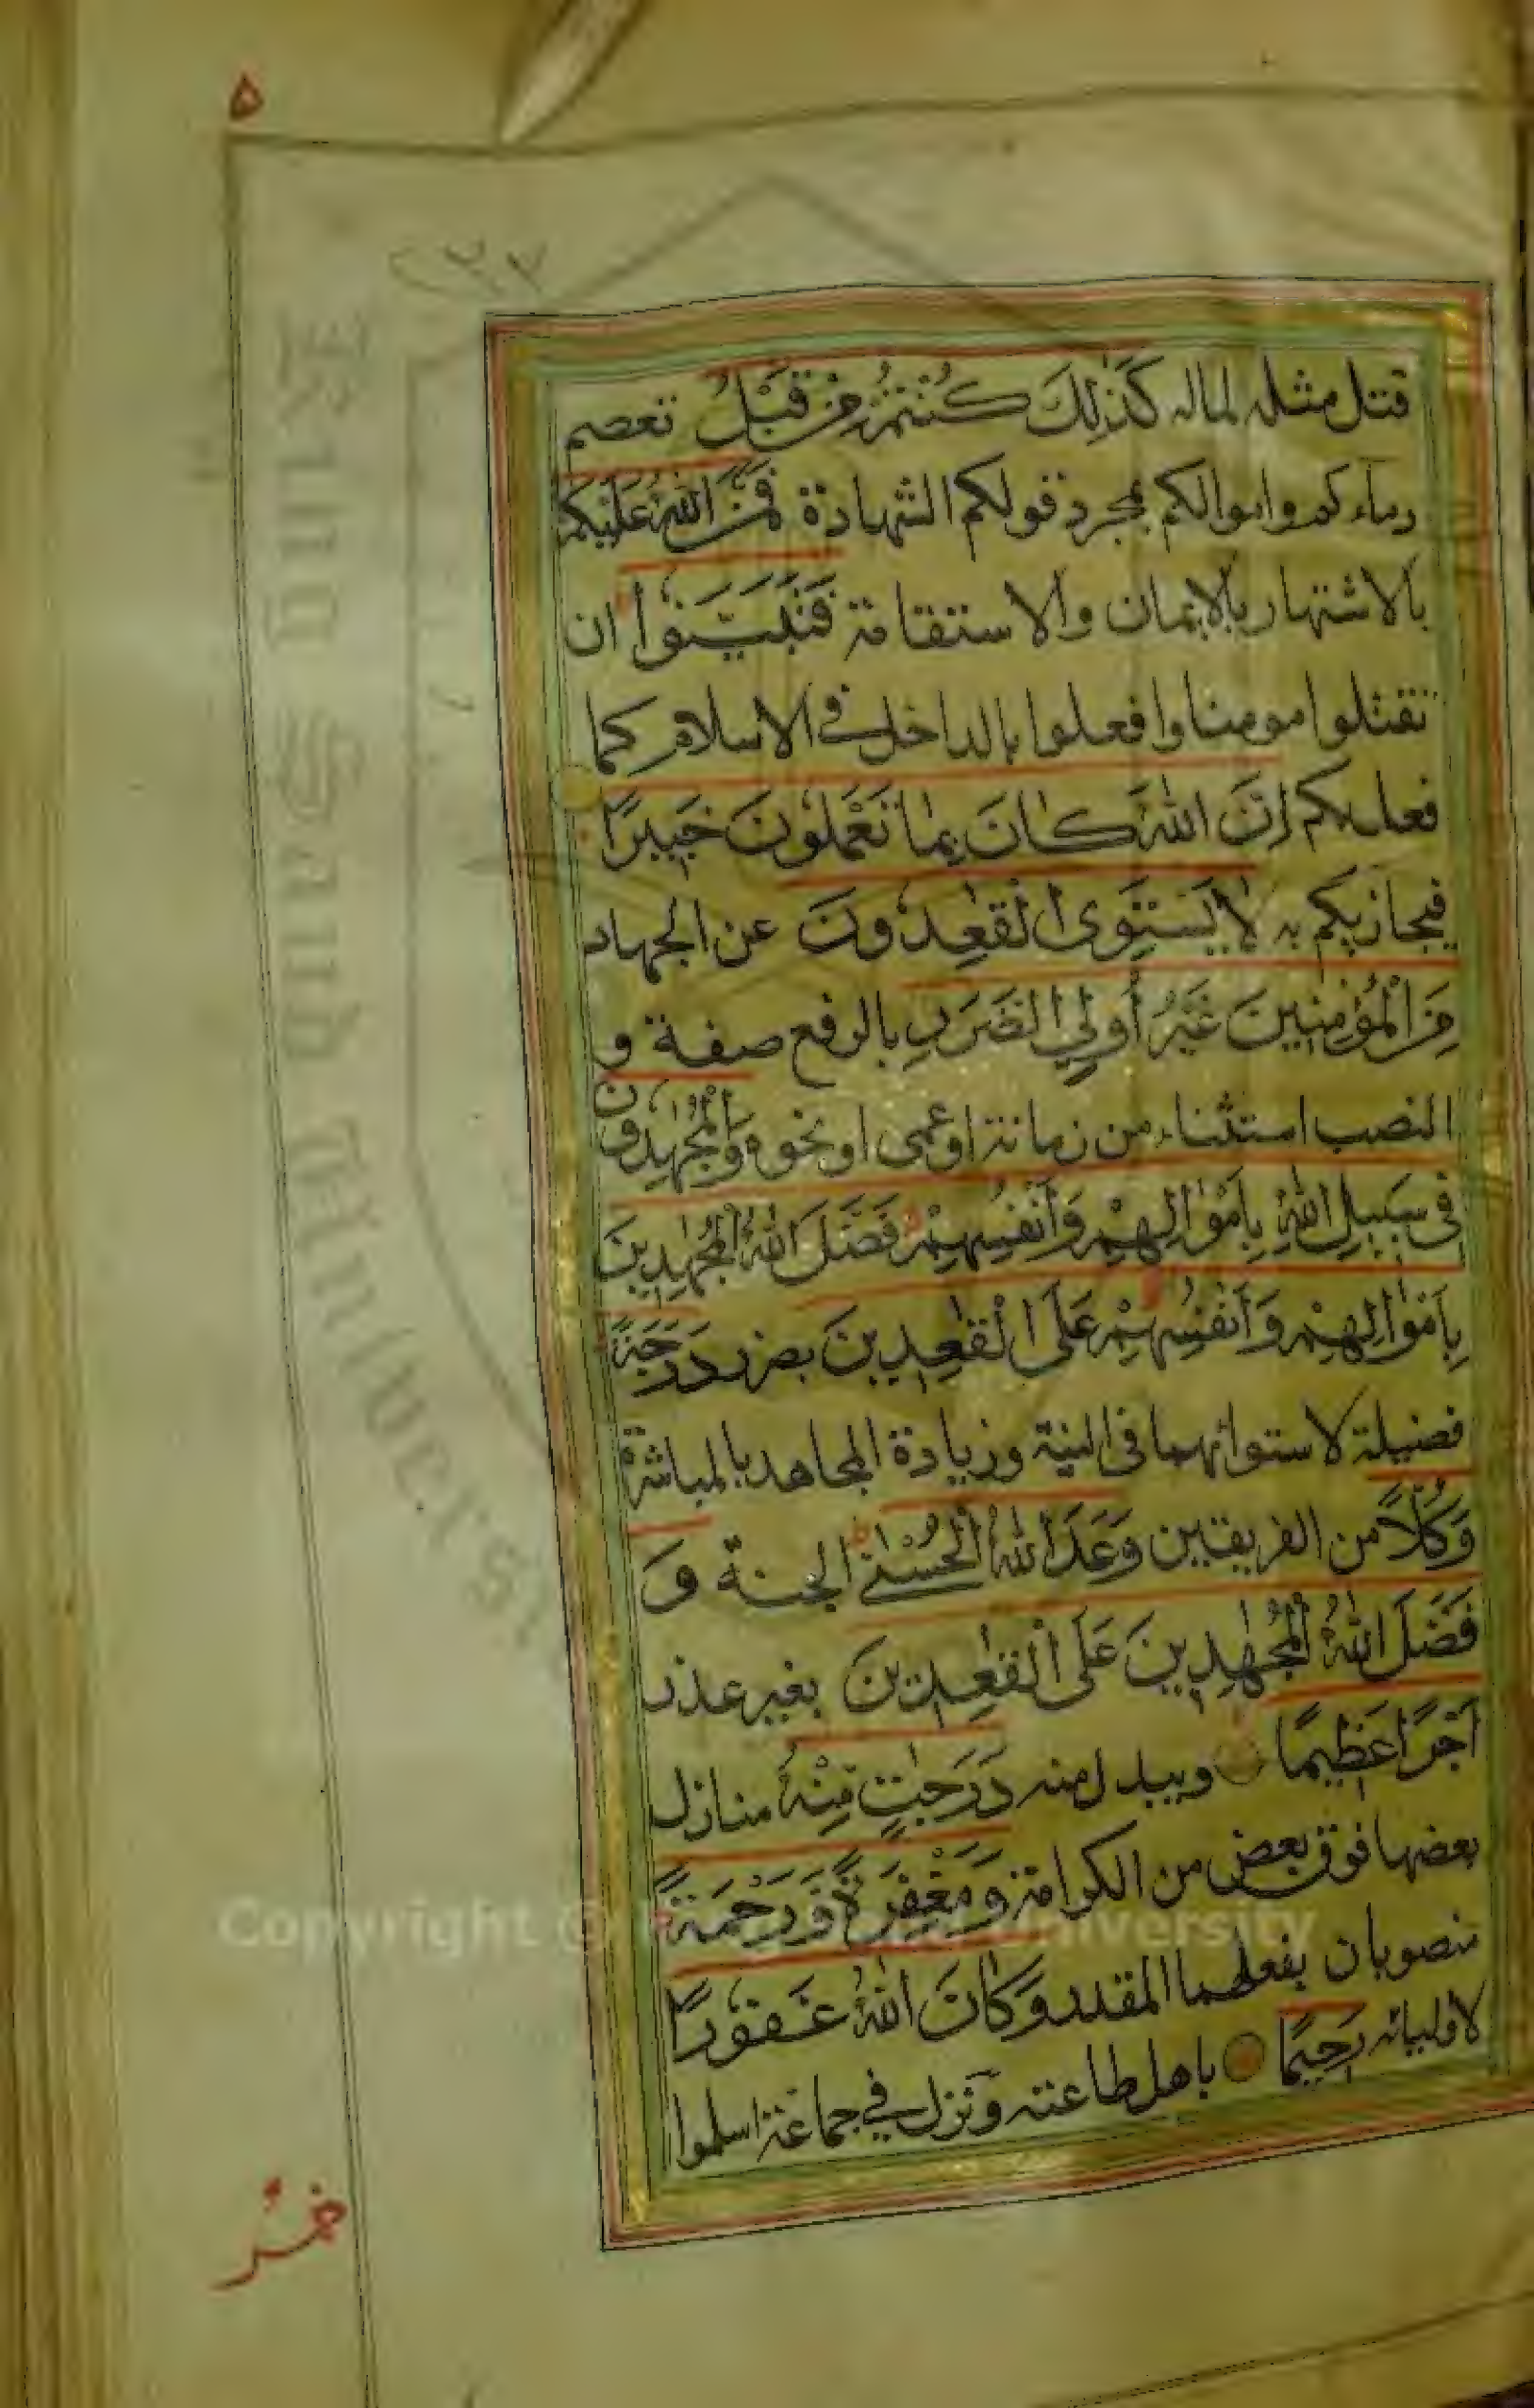 ٥
٢٢٢
قتل مثله لماله كَذٰلِكَ كُنْتُمْ مِّنْ قَبْلُ تعصم
دماءكم واموالكم بمجرد قولكم الشهادة فَمَنَّ اللّٰهُ عَلَيْكُمْ
بالاشتهار بالايمان والاستقامة فَتَبَيَّنُوْا ان
تقتلوا مومنا وافعلوا بالداخل في الاسلام كما
فعل بكم اِنَّ اللّٰهَ كَانَ بِمَا تَعْمَلُوْنَ خَبِيْرًا
فيجازيكم به لَا يَسْتَوِى الْقٰعِدُوْنَ عن الجهاد
مِنَ الْمُؤْمِنِيْنَ غَيْرُ اُولِي الضَّرَرِ بالرفع صفة و
النصب استثناء من زمانة او عمى او نحوه وَالْمُجٰهِدُوْنَ
فِى سَبِيْلِ اللّٰهِ بِاَمْوَالِهِمْ وَاَنْفُسِهِمْ فَضَّلَ اللّٰهُ الْمُجٰهِدِيْنَ
بِاَمْوَالِهِمْ وَاَنْفُسِهِمْ عَلَى الْقٰعِدِيْنَ بضرر دَرَجَةً
فضيلة لاستوائهما في النية وزيادة المجاهد بالمباشرة
وَكُلًّا من الفريقين وَعَدَ اللّٰهُ الْحُسْنٰى الجنة وَ
فَضَّلَ اللّٰهُ الْمُجٰهِدِيْنَ عَلَى الْقٰعِدِيْنَ بغير عذر
اَجْرًا عَظِيْمًا ويبدل منه دَرَجٰتٍ مِّنْهُ منازل
بعضها فوق بعض من الكرامة وَمَغْفِرَةً وَّرَحْمَةً
منصوبان بفعلهما المقدر وَكَانَ اللّٰهُ غَفُوْرًا
لاوليائه رَحِيْمًا باهل طاعته ونزل في جماعة اسلموا
King Saud University
Copyright © King Saud University